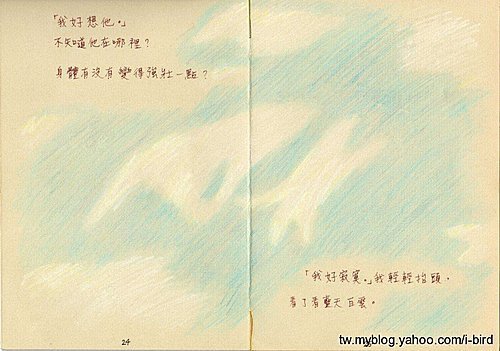 「我好想他。」
不知道他在哪裡？
身體有沒有變得強壯一點？
「我好寂寞。」我輕輕抬頭，
看了看藍天白雲。
24
tw.myblog.yahoo.com/i-bird